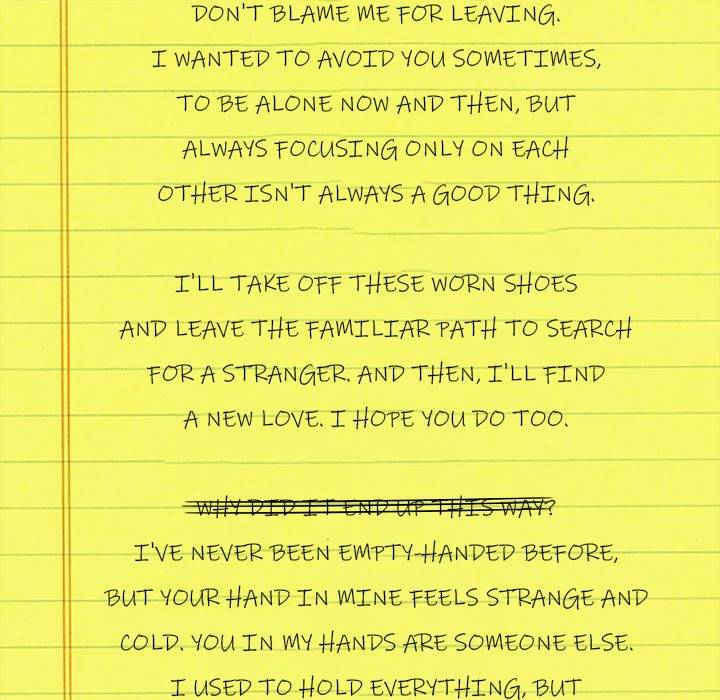 DON'T BLAME ME FOR LEAVING.
I WANTED TO AVOID YOU SOMETIMES,
TO BE ALONE NOW AND THEN, BUT
ALWAYS FOCUSING ONLY ON EACH
OTHER ISN'T ALWAYS A GOOD THING.
I'LL TAKE OFF THESE WORN SHOES
AND LEAVE THE FAMILIAR PATH TO SEARCH
FOR A STRANGER. AND THEN, I'LL FIND
A NEW LOVE. I HOPE YOU DO TOO.
WHY DID IT END UP THIS WAY?
I'VE NEVER BEEN EMPTY-HANDED BEFORE,
BUT YOUR HAND IN MINE FEELS STRANGE AND
COLD. YOU IN MY HANDS ARE SOMEONE ELSE.
I USED TO HOLD EVERYTHING, BUT